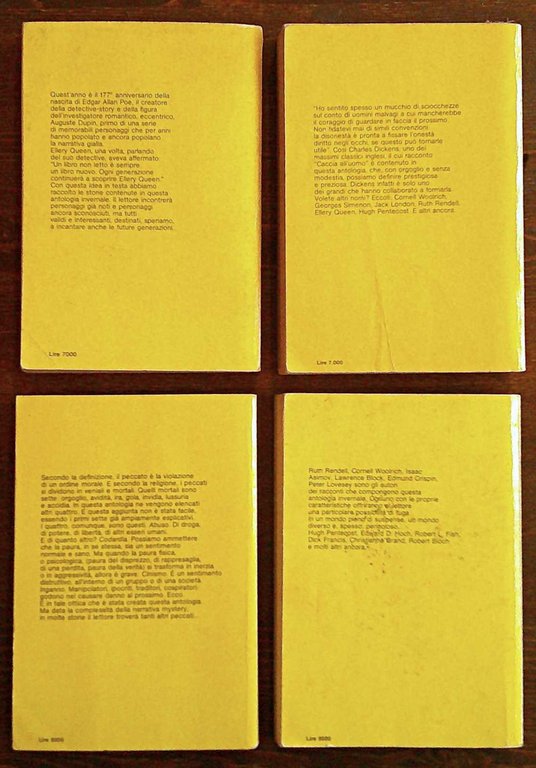 Quest'anno è il 177° anniversario della
nascita di Edgar Allan Poe, il creatore
della detective-story e della figura
dell'investigatore romantico, eccentrico,
Auguste Dupin, primo di una serie
di memorabili personaggi che per anni
hanno popolato e ancora popolano
la narrativa gialla.
Ellery Queen, una volta, parlando
del suo detective, aveva affermato:
"Un libro non letto è sempre
un libro nuovo. Ogni generazione
continuerà a scoprire Ellery Queen."
Con questa idea in testa abbiamo
raccolto le storie contenute in questa
antologia invernale. Il lettore incontrerà
personaggi già noti e personaggi
ancora sconosciuti, ma tutti
validi e interessanti, destinati, speriamo,
a incantare anche le future generazioni.
Lire 7000
"Ho sentito spesso un mucchio di sciocchezze
sul conto di uomini malvagi a cui mancherebbe
il coraggio di guardare in faccia il prossimo.
Non fidatevi mai di simili convenzioni:
la disonestà è pronta a fissare l'onestà
diritto negli occhi, se questo può tornarle
utile". Così Charles Dickens, uno dei
massimi classici inglesi, il cui racconto
"Caccia all'uomo" è contenuto in
questa antologia, che, con orgoglio e senza
modestia, possiamo definire prestigiosa
e preziosa. Dickens infatti è solo uno
dei grandi che hanno collaborato a formarla.
Volete altri nomi? Eccoli: Cornell Woolrich,
Georges Simenon, Jack London, Ruth Rendell,
Ellery Queen, Hugh Pentecost. E altri ancora.
Lire 7.000
Secondo la definizione, il peccato è la violazione
di un ordine morale. E secondo la religione, i peccati
si dividono in veniali e mortali. Quelli mortali sono
sette: orgoglio, avidità, ira, gola, invidia, lussuria
e accidia. In questa antologia ne vengono elencati
altri quattro. E questa aggiunta non è stata facile,
essendo i primi sette già ampiamente esplicativi.
I quattro, comunque, sono questi. Abuso. Di droga,
di potere, di libertà, di altri esseri umani.
E di quanto altro? Codardia. Possiamo ammettere
che la paura, in se stessa, sia un sentimento
normale e sano. Ma quando la paura fisica,
o psicologica, (paura del disprezzo, di rappresaglia,
di una perdita, paura della verità) si trasforma in inerzia
o in aggressività, allora è grave. Cinismo. È un sentimento
distruttivo, all'interno di un gruppo o di una società.
Inganno. Manipolatori, ipocriti, traditori, cospiratori
godono nel causare danno al prossimo. Ecco.
È in tale ottica che è stata creata questa antologia.
Ma data la complessità della narrativa mystery,
in molte storie il lettore troverà tanti altri peccati...
Lire
Ruth Rendell, Cornell Woolrich, Isaac
Asimov, Lawrence Block, Edmund Crispin,
Peter Lovesey sono gli autori
dei racconti che compongono questa
antologia invernale. Ognuno con le proprie
caratteristiche offriranno al lettore
una particolare possibilità di fuga
in un mondo pieno di suspense, un mondo
diverso e, spesso, pericoloso.
Hugh Pentecost, Edward D. Hoch, Robert L. Fish,
Dick Francis, Christianna Brand, Robert Bloch
e molti altri ancora.
Lire